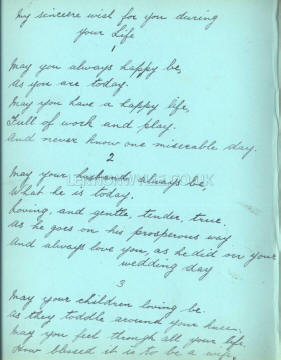 My sincere wish for you during
your Life
1
May you always happy be,
As you are today.
May you have a happy life,
Full of work and play.
And never know one miserable day.
2
May your husband always be,
What he is today.
Loving, and gentle, tender, true.
As he goes on his prosperous way
And always love you, as he did on your
wedding day
3
May your children loving be.
As they toddle around your knee.
May you feel through all your life,
How blessed it is to be a wife